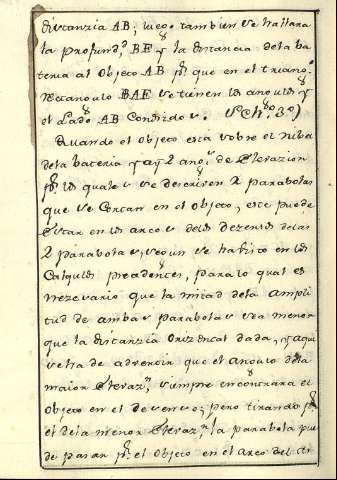 distanzia AB; luego tambien se hallara
la profund.d BE y la distancia dela ba
teria al Objeto AB p.r que en el triang.o
rectangulo BAE se tienen los angulos y
el Lado AB Conozidos.
Quando el objeto esta sobre el nibel
dela bateria y ay 2 ang.s de Elevazion
p.r los quales se descriven 2 parabolas
que se Cortan en el objeto, este puede
Estar en los arcos delos dezensos delas
2 parabolas, segun se ha visto en los
Calculos precedences, para lo qual es
nezesario que la mitad dela ampli
tud de ambas parabolas sea menor
que la distanzia Orizontal dada, y aqui
se ha de advertir que el angulo dela
maior Elevaz.n siempre encontrara el
objeto en el desenso; pero tirando p.r
el dela menor Elevaz.n la parabola pue
de pasar p.r el objeto en el arco del As